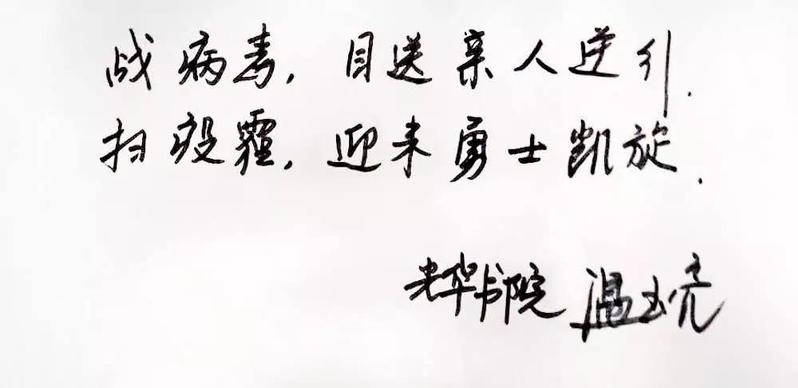 战病毒，目送亲人逆行.
扫疫霾，迎来勇士凯旋.
光华书院 温玉亮